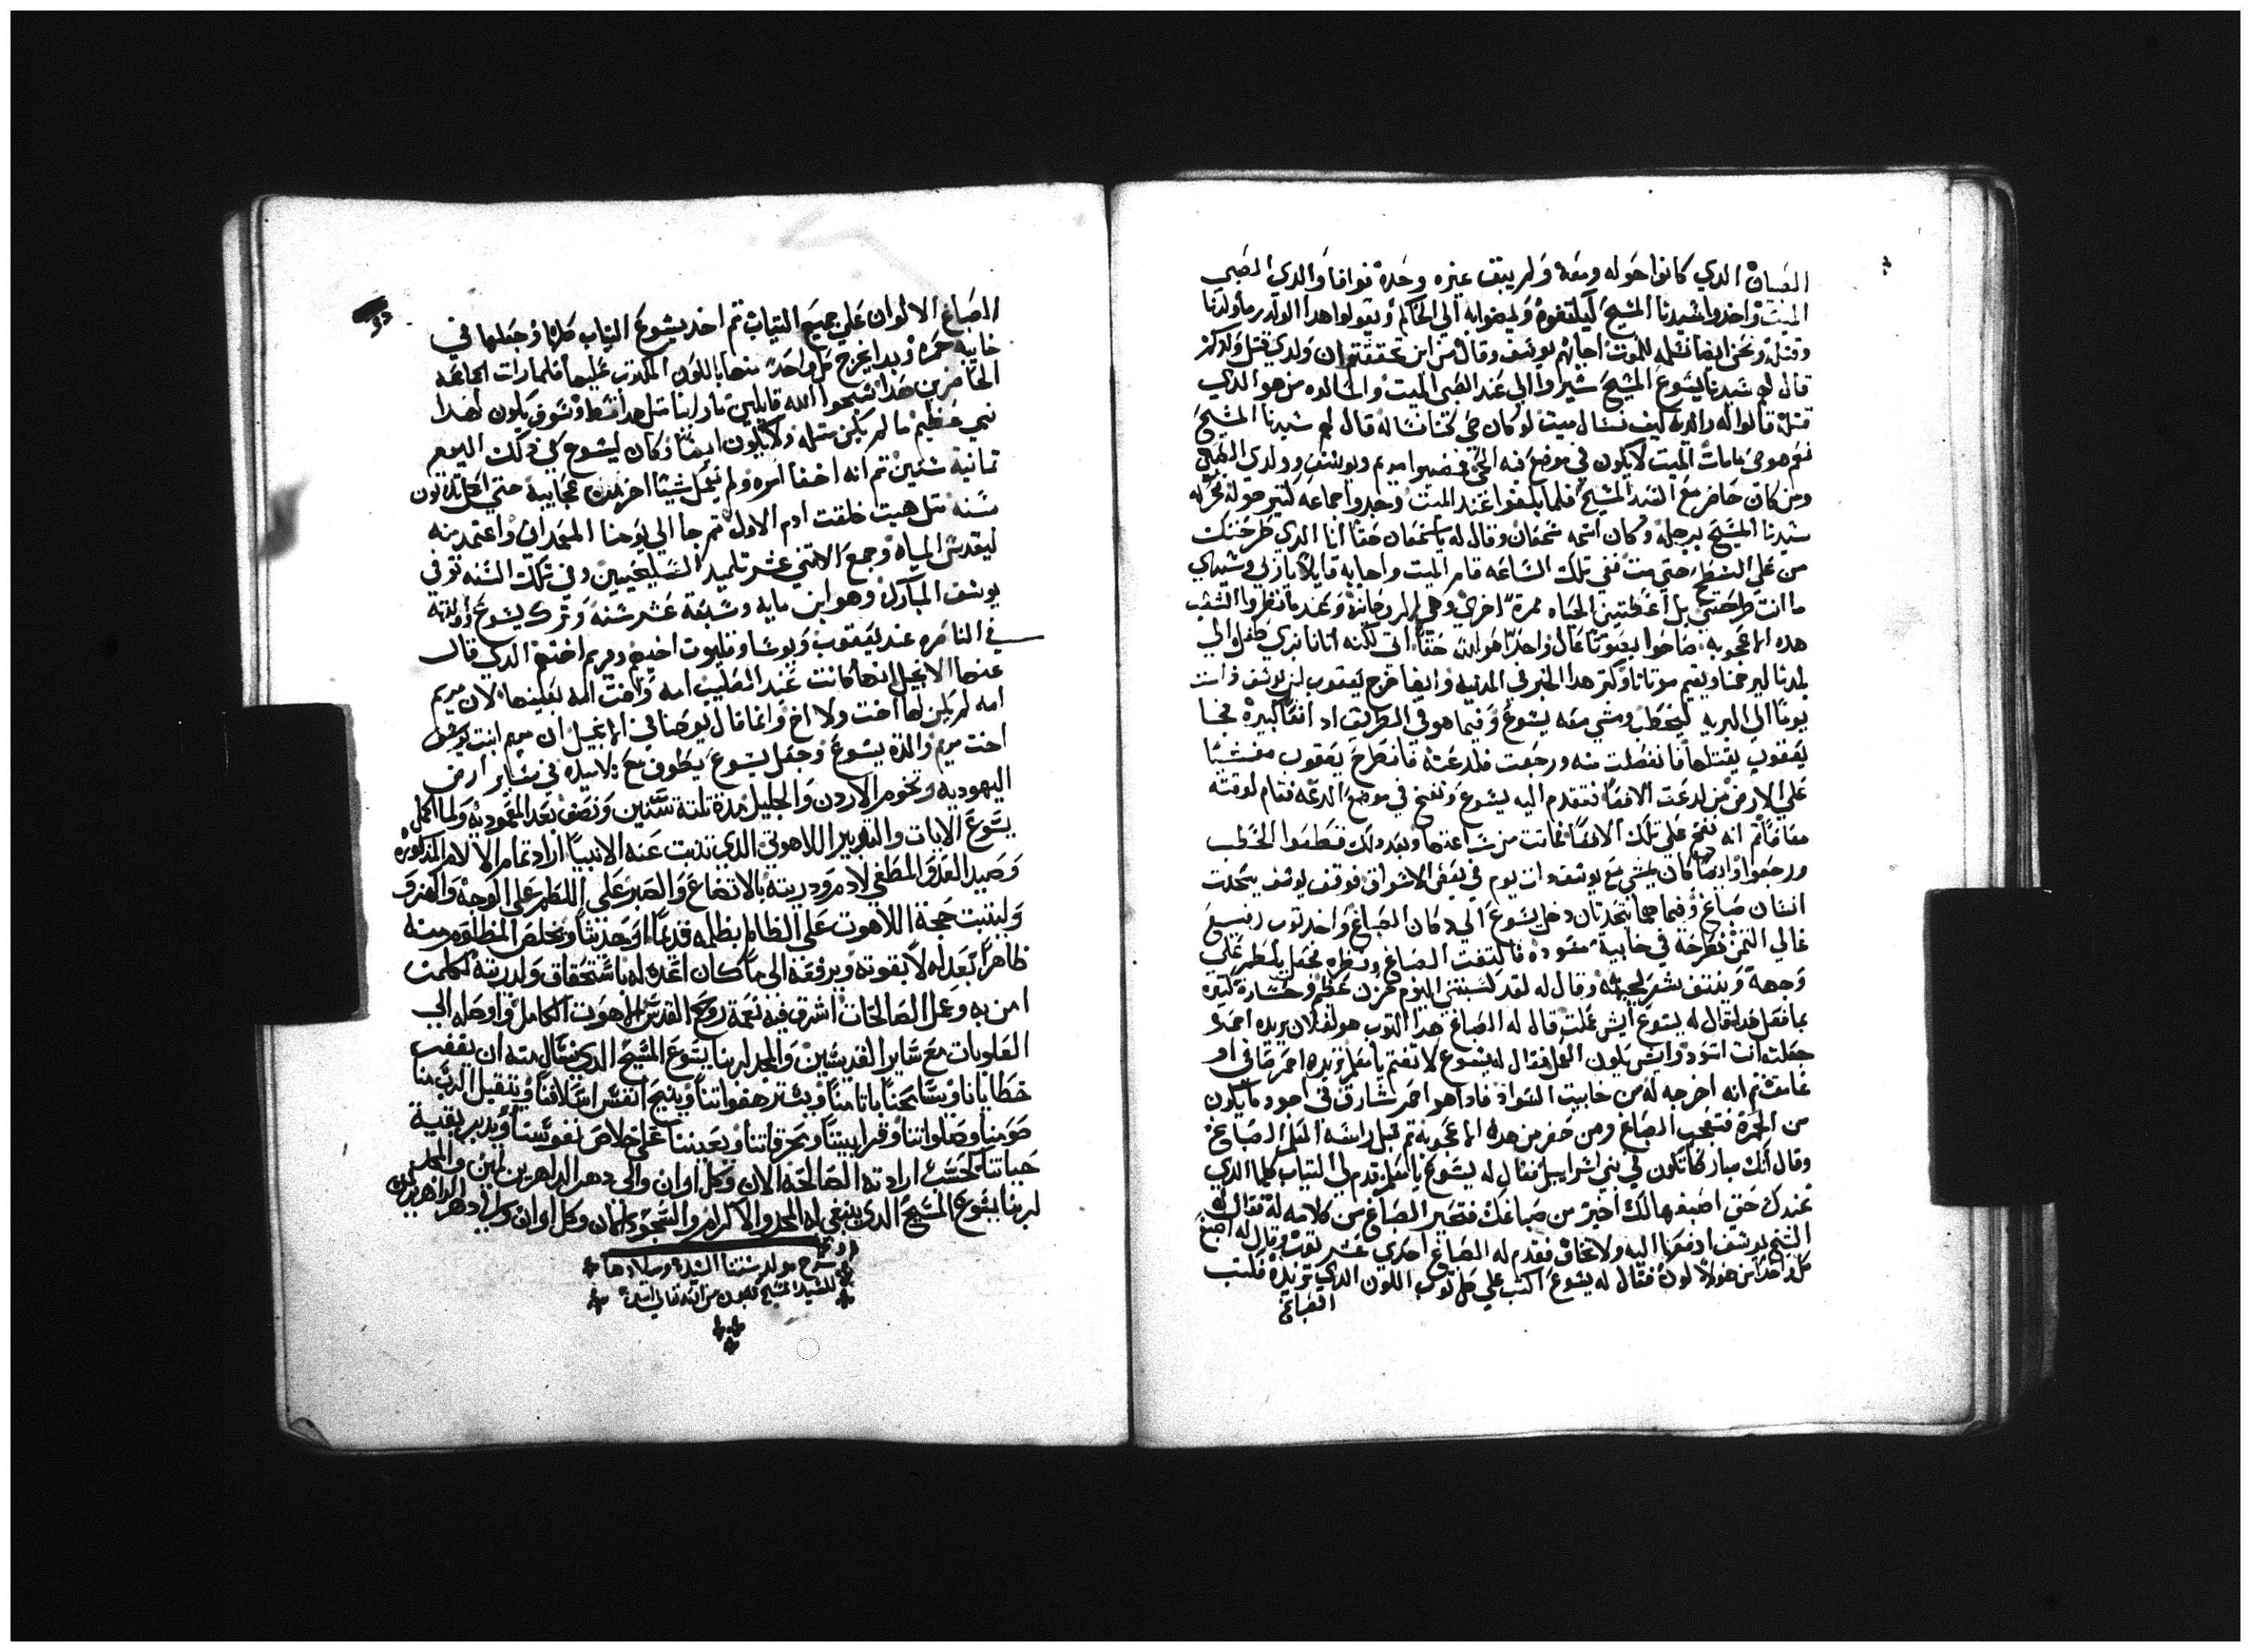 الصبيان الدي كانوا حوله ومعه ولم يبق غيره وحده فوافا والدي الصبي
الميت واخدوا سيدنا المسيح ليلتقوه وليمضوا به الي الحاكم ويقولوا هدا الولد رما ولدنا
وقتله ونحن ايضا نسلمه للموت اجابهم يوسف وقال من اين تحققتم ان ولدي قتل ولدكم
قال لهم سيدنا يسوع المسيح سيروا الي عند الصبي الميت واسالوه من هو الدي
قتله قالوا له والديه كيف نسال ميت لو كان حي كنا نساله قال لهم سيدنا المسيح
نعم هو حي مامات الميت لا يكون في موضع فيه الحي فمضوا مريم ويوسف ووالدي الصبي
ومن كان حاضر مع السيد المسيح فلما بلغوا عند الميت وجدوا جماعه كتير حوله فحركه
سيدنا المسيح برجله وكان اسمه سمعان وقال له يا سمعان حقا انا الدي طرحتك
من علي السطح حتي مت ففي تلك الساعه قام الميت واجابه قايلا يا ربي وسيدي
ما انت طرحتني بل اعطيتني الحياه مرة اخري وعندما نظروا الشعب
هده الاعجوبه صاحوا بصوتا عال واحدا هو الله حقا اتي لكنه اتانا بزي طفل الي
بلدنا ليرحمنا ويقيم موتانا وكتر هدا الخبر في المدينه وايضا خرج يعقوب ابن يوسف دات
يوما الي البريه ليحطب ومشي معه يسوع وفيما هو في الطريق اد افعا كبيرة فجا
يعقوب يقتلها فانفصلت منه ورجعت فلدعته فانطرح يعقوب مغشيا
علي الارض من لدعت الافعا فتقدم اليه يسوع ونفخ في موضع الدعه فقام لوقته
معافا تم انه نفخ علي تلك الافعا فماتت من ساعتها وبعد دلك قطعوا الحطب
ورجعوا وايضا كان يمشي مع يوسف دات يوم في بعض الاسواق فوقف يوسف يتحدت
انسان صباغ وفيما هما يتحدتان دخل يسوع الي دكان الصباغ واخد توب رفيع
غالي التمن فطرحه في خابية سوده فالتفت الصباغ ونظره فجعل يلطم علي
وجهه وينتف شعر لحيته وقال له لقد كسبتني اليوم حزن عظيم وخسارة كتيرة
بما فعل هدا قال له يسوع ايش عملت قال له الصباغ هدا التوب هو لفلان يريده احمر
جعلته انت اسود وايش يكون العمل فقال له يسوع لا تغتم يا معلم تريده احمر قاني او
غامق تم انه اخرجه له من خابيت السواد فادا هو احمر شارق في اجود ما يكون
من الحمرة فتعجب الصباغ ومن حضر من هده الاعجوبه تم قبل راسه المعلم الصباغ
وقال انك مباركا تكون في بني اسراييل فقال له يسوع يا معلم قدم لي التياب كلها الدي
عندك حتي اصبغها لك اخير من صباغك فتحير الصباغ من كلامه له فقال له
الشيخ يوسف ادفعها اليه ولا تخاف فقدم له الصباغ احدي عشر توب وقال له اصبغ
كل واحد من هولا لون فقال له يسوع اكتب علي كل توب اللون الدي تريده فكتب
الصباغ
الصباغ الالوان علي جميع التياب تم اخد يسوع التياب كلها وجعلها في
خابية حمره وبدا يخرج كل واحد منها باللون المكتوب عليها فلما رات الجماعه
الحاضرين هدا سبحوا الله قايلين ما راينا متل هدا قط وسوف يكون لهدا
نبي عظيم ما لم يكن متله ولا يكون ايضا وكان ليسوع في دلك اليوم
تمانية سنين تم انه اخفا امره ولم يعمل شيئا اخر من عجايبه حتي اكمل تلاتون
سنه متل هيت خلقت ادم الاول تم جا الي يوحنا المعمدان واعتمد منه
ليقدس المياه وجمع الاتني عشر تلميد السليحيين وفي تلك السنه توفي
يوسف المبارك وهو ابن مايه وسبعة عشر سنة وترك يسوع والدته
في الناصره عند يعقوب ويوسا وفليوت اخيهم ومريم اختهم الدي قال
عنها الانجيل انها كانت عند الصليب امه واخت امه بعينها لان مريم
امه لم يكن لها اخت ولا اخ وانما قال يوحنا في الانجيل ان مريم ابنت يوسف
اخت مريم والدة يسوع وجعل يسوع يطوف مع تلاميده في ساير ارض
اليهوديه وتخوم الاردن والجليل مدة تلتة سنين ونصف بعد المعموديه ولما اكمل
يسوع الايات والتدبير اللاهوتي الدي تنبت عنه الانبيا اراد تمام الالام المدكوره
وصيد العدو المطغي لادم ودريته بالاتضاع والصبر علي اللطم علي الوجه والهزو
وليتبت حجة اللاهوت علي الظالم بظلمه قديما وحديتا ويخلص المظلوم منه
ظاهرا بعدله لا بقوته ويرفعه الي ما كان اعده له باستحقاق ولدريته لكلمن
امن به وعمل الصالحات اشرق فيه نعمة روح القدس اللاهوت الكامل واوصله الي
العلويات مع ساير القديسين والمجد لربنا يسوع المسيح الدي نسال منه ان يغفر
خطايانا ويسامحنا باتامنا ويستر هفواتنا وينيح انفس اسلافنا ويتقبل الرب منا
صومنا وصلواتنا وقرابيننا ومحرقاتنا ويعيننا علي خلاص نفوسنا ويدبر بقية
حياتنا كحسب ارادته الصالحه الان وكل اوان والي دهر الداهرين امين والمجد
لربنا يسوع المسيح الدي ينبغي له المجد والاكرام والسجود الان وكل اوان والي دهر الداهرين امين
وشرح مولد ستنا السيدة وميلادها
للسيد المسيح بعون من الله تعالي امين